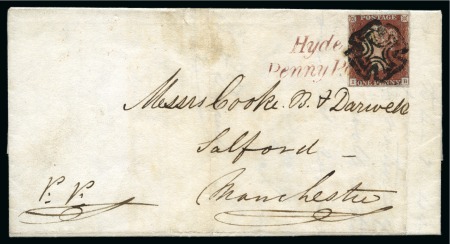 POSTAGE
Hyde
Penny Po
ONE PENNY
Messrs Cooke. B. & Darwell
Salford
Manchester